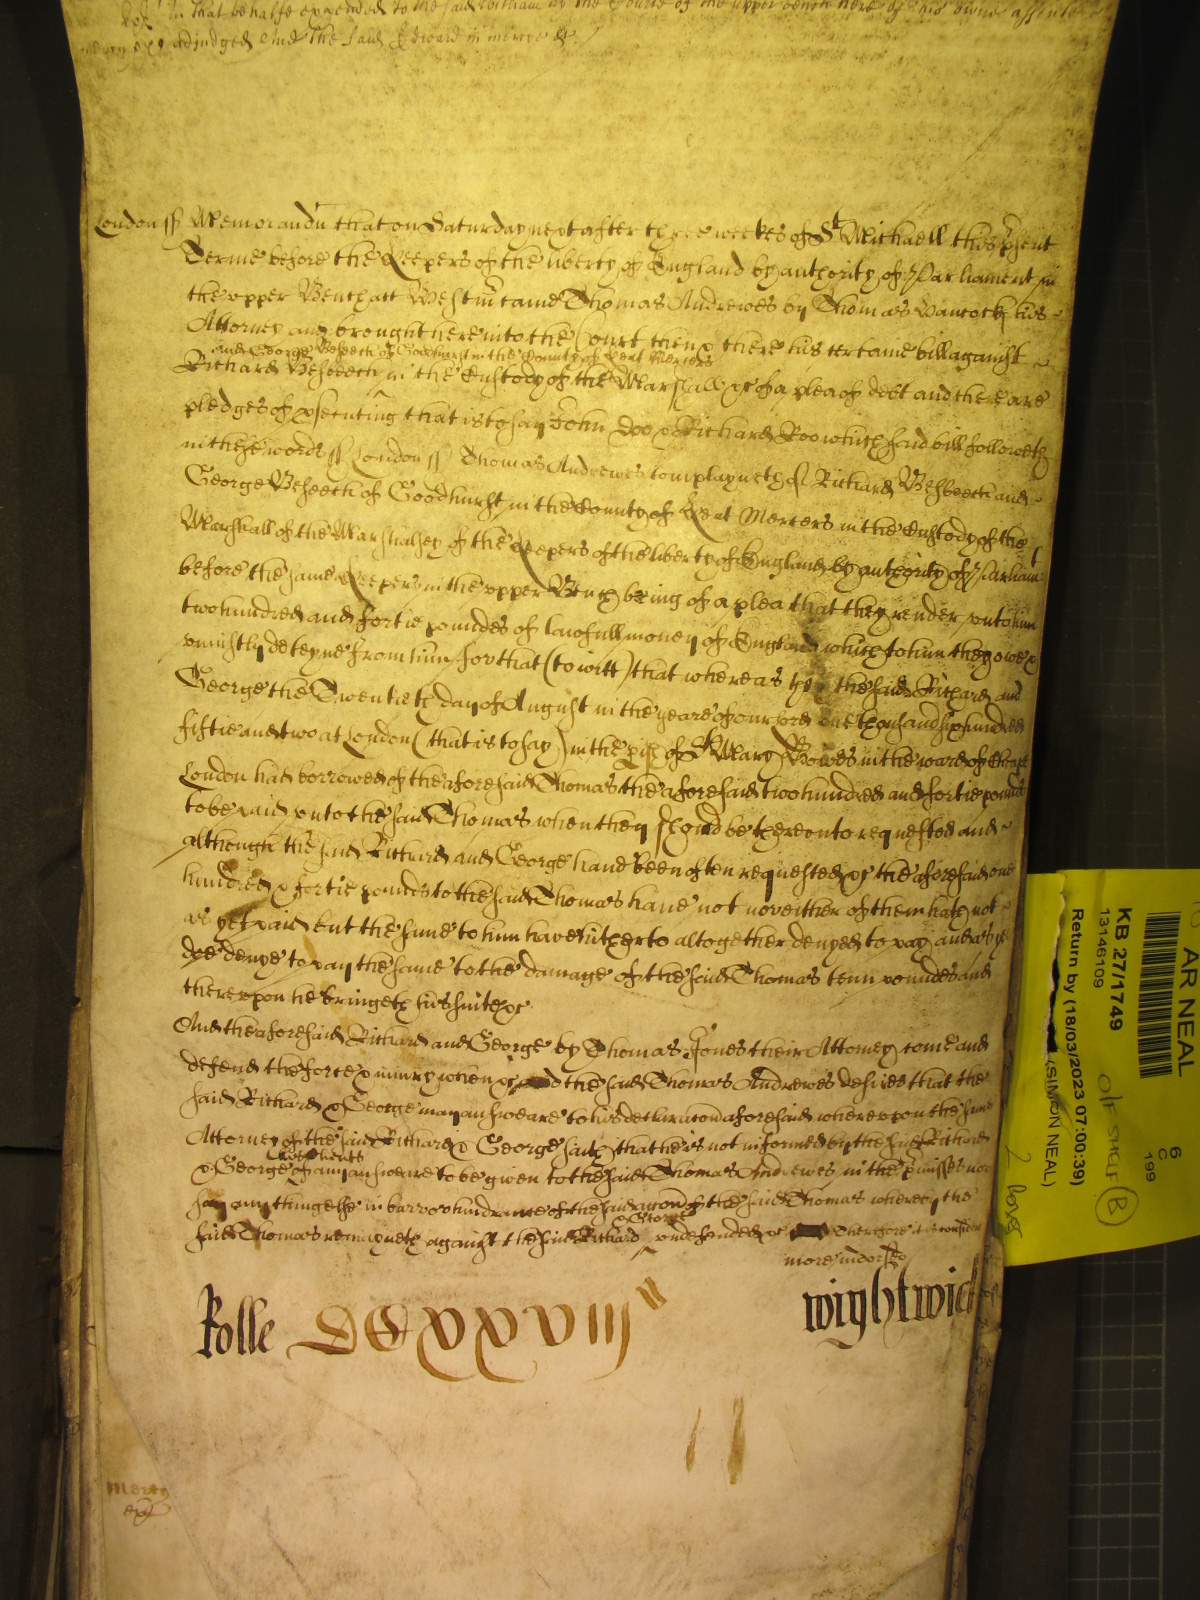 in that behalfe expended to the said William by the Court of the upper bench here of his owne assente
adjudged And the said Edward in mercye &c
London ss Memorandu that on Saturday next after three weekes of St Michaell this psent
Terme before the Keepers of the liberty of England by authority of Parliament in
the upper Bench att Westmr came Thomas Andrewes by Thomas Hancock his
Attorney and brought here into the Court then & there his certaine bill against
and George Besbeech of Goodhurst in the County of Kent Mercers
Richard Besbeech in the Custody of the Marshall &c of a plea of debt and there are
pledges of psecuting that is to say John Doo & Richard Roo which said bill followeth
in these words ss London ss Thomas Andrewes complayneth of Richard Besbeech and
George Besbeech of Goodhurst in the County of Kent Mercers in the Custody of the
Marshall of the Marshalsey of the Keepers of the liberty of England by authority of Parliamt
before the same Keepers in the upper Bench being of a plea that they render unto him
two hundred and fortie poundes of lawfull money of England which to him they owe &
uniustly deteyne from him for that (to witt) that whereas they the said Richard and
George the Twentieth day of August in the yeare of our lord one thousand six hundred
fiftie and two at London (that is to say) in the pish of St Mary Bowes in the ward of Cheape
London had borrowed of the aforesaid Thomas the aforesaid two hundred and fortie pounds
to be paid unto the said Thomas when they should be thereunto requested and
although the said Richard and George have been often requested &c the aforesaid one
hundred & fortie pounds to the said Thomas have not nor either of them hath not
as yet paid but the same to him have hitherto altogether denyed to pay and as yet
doe denye to pay the same to the damage of the said Thomas tenn poundes and
thereupon he bringeth his suite &c
And the aforesaid Richard and George by Thomas Jones their Attorney come and
defend the force & iniury when &c and the said Thomas Andrewes desires that the
said Richard & George may answeare to his declaracon aforesaid whereupon the same
Attorney of the said Richard & George saith that he is not informed by the said Richard
his Clients
& George of any answeare to be given to the said Thomas Andrewes in the pmisses nor
say any thing else in barr or hindrance of the said accon of the said Thomas whereby the
& George
said Thomas remayneth against the said Richard undefended &c Therefore it is considered
more indorsed
Rolle DCxxxviij
wightwick
Mercy
AR NEAL
KB 27/1749
13146109
Return by (18/03/2023 07:00:39)
(SIMON NEAL)
6
C
199
O/F SHELF B
2 boxes